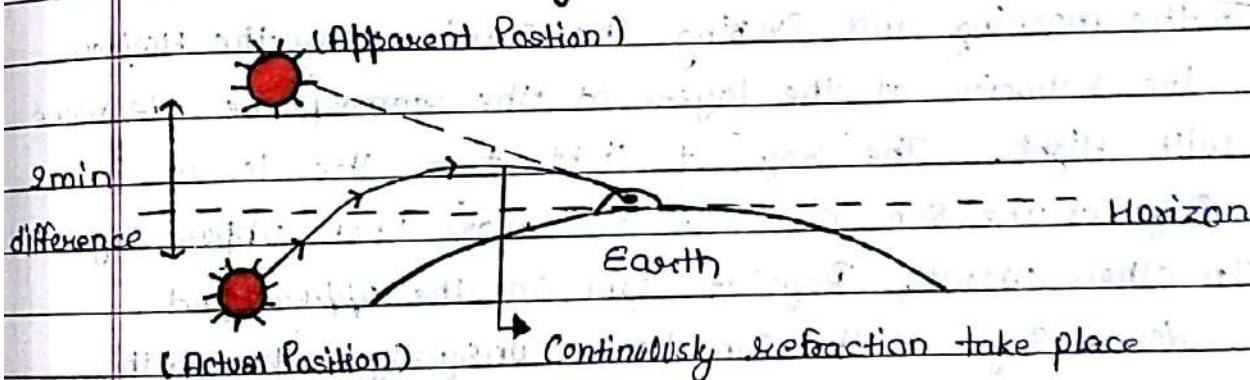 (Apparent Postion)
2min
difference
Horizon
Earth
(Actual Position)
Continuously refraction take place